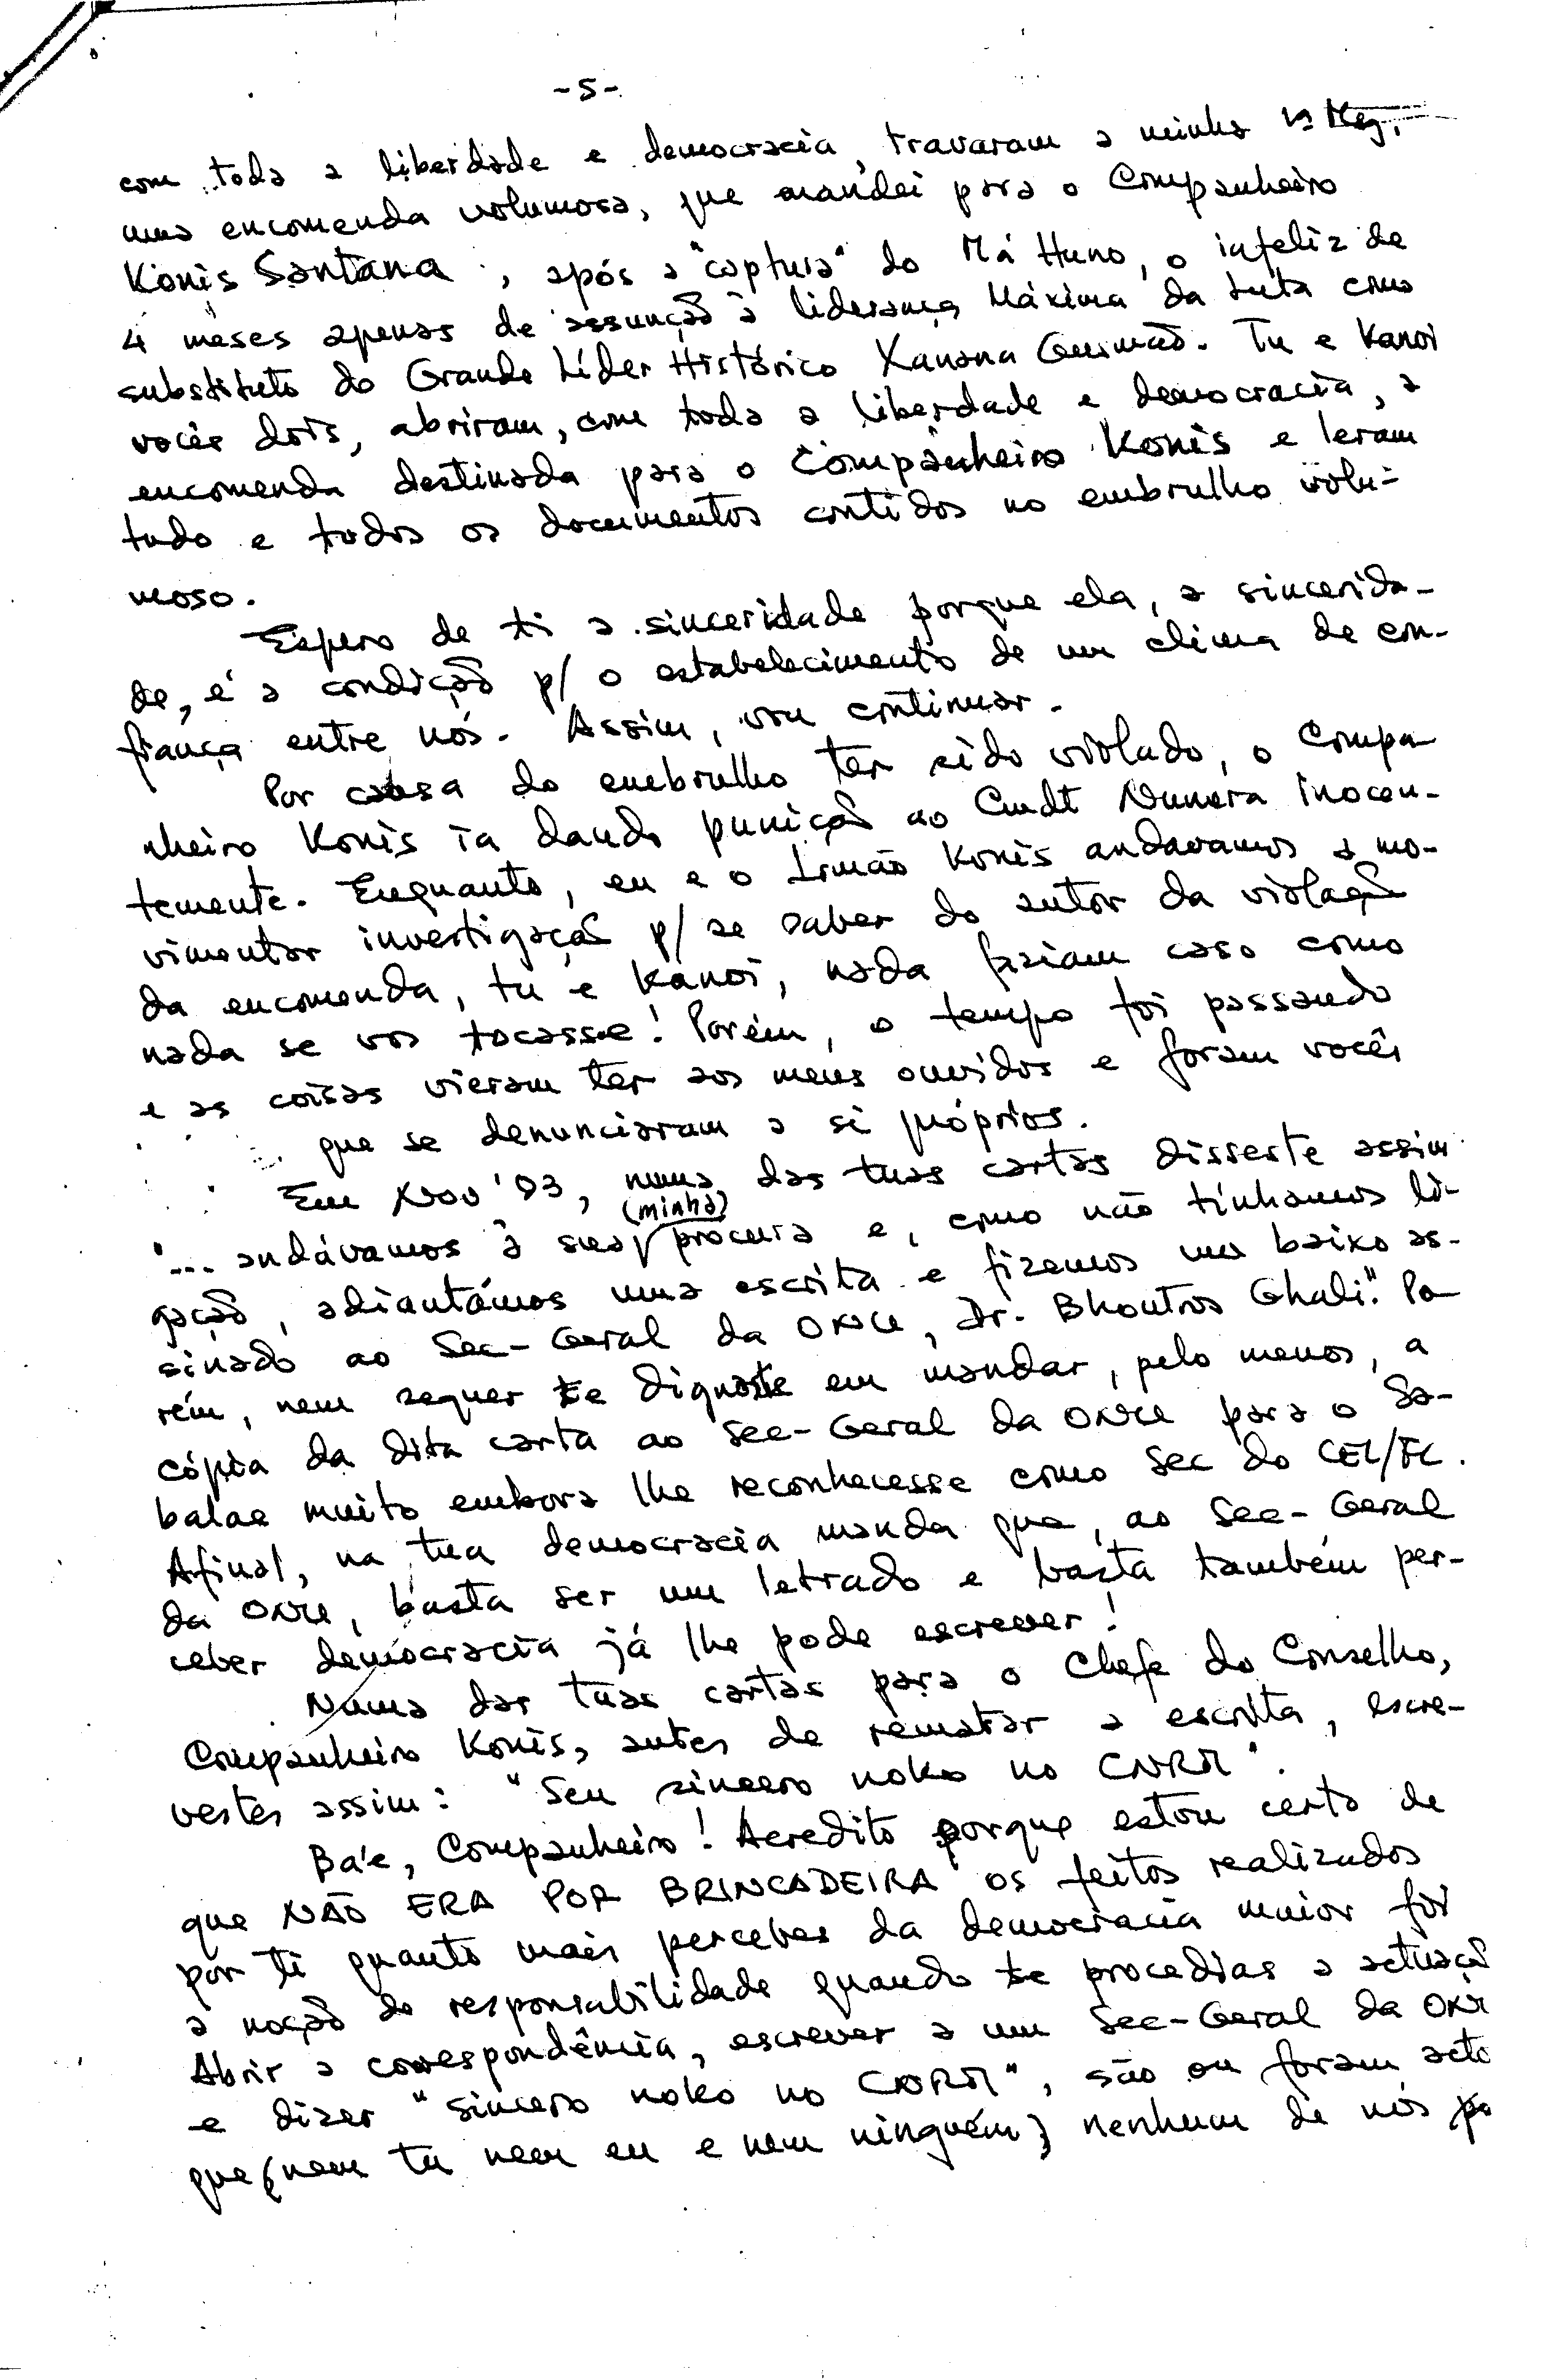 -5-
com toda a liberdade e democracia, travaram a minha
uma encomenda volumosa, que mandei para o Companheiro
Konis Santana, após a "captura" do Má Huno, o infeliz de
4 meses apenas de assunção à liderança Máxima da Luta como
substituto do Grande Líder Histórico Xanana Gusmão. Tu e Kanoi
vocês dois, abriram, com toda a liberdade e democracia, a
encomenda destinada para o Companheiro Konis e leram
tudo e todos os documentos contidos no embrulho volu-
moso.
Espero de ti a sinceridade porque ela, a sincerida-
de, é a condição p/ o estabelecimento de um clima de con-
fiança entre nós. Assim, vou continuar.
Por causa do embrulho ter sido violado, o Compa-
nheiro Konis ia dando punição ao Cmdt Nunura inocen-
temente. Enquanto, eu e o Irmão Konis andavamos a mo-
vimentar investigação p/ se saber do autor da violação
da encomenda, tu e Kanoi, nada faziam caso como
nada se vos tocasse! Porém, o tempo foi passando
e as coisas vieram ter aos meus ouvidos e foram vocês
que se denunciaram a si próprios.
Em Nov '93, numa das tuas cartas disseste assim
"... andávamos à sua (minha) procura e, como não tínhamos li-
gação, adiantámos uma escrita e fizemos um baixo as-
sinado ao Sec-Geral da ONU, Dr. Bhoutros Ghali". Po-
rém, nem sequer te dignaste em mandar, pelo menos, a
cópia da dita carta ao Sec-Geral da ONU para o Sa-
balae muito embora lhe reconhecesse como Sec do CEL/FC.
Afinal, na tua democracia manda que, ao Sec-Geral
da ONU, basta ser um letrado e basta também per-
ceber democracia já lhe pode escrever!
Numa das tuas cartas para o Chefe do Conselho,
Companheiro Konis, antes de rematar a escrita, escre-
vestes assim: "Seu sincero noko no CNRM".
Ba'e, Companheiro! Acredito porque estou certo de
que NÃO ERA POR BRINCADEIRA os feitos realizados
por ti quanto mais percebes da democracia maior foi
a noção de responsabilidade quando te procedias a actuaçã
Abrir a correspondência, escrever a um Sec-Geral da ONU
e dizer "sincero noko no CNRM", são ou foram acto
que (nem tu nem eu e nem ninguém) nenhum de nós po